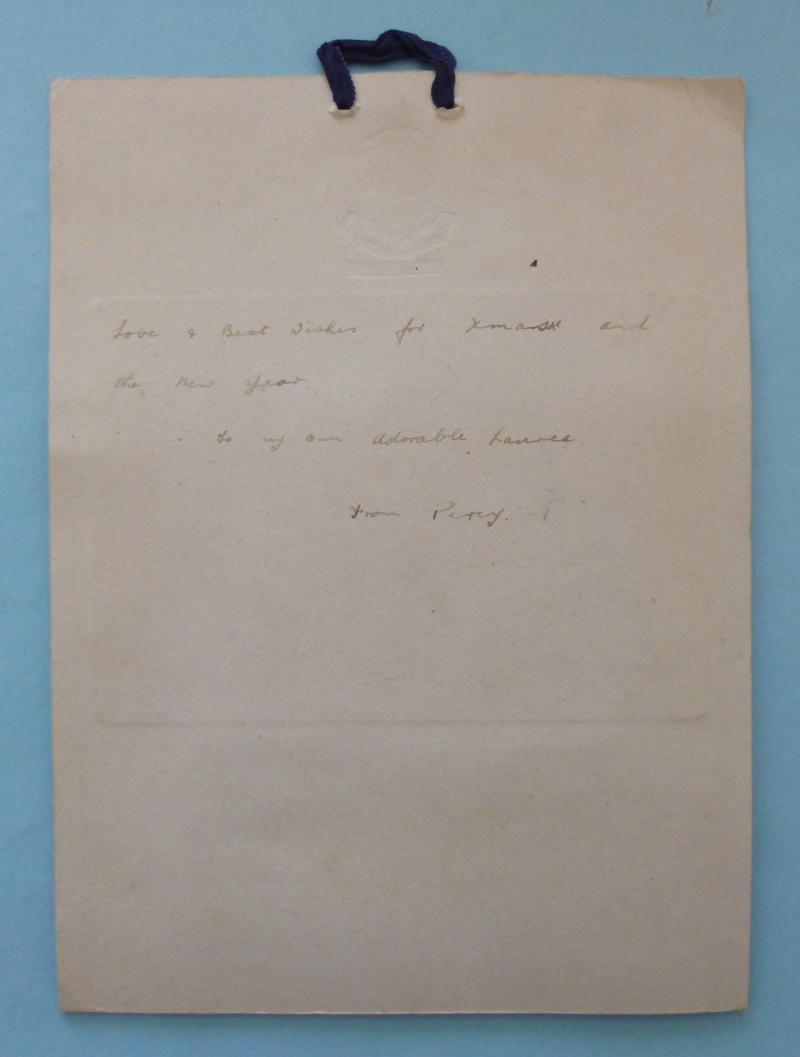 Love & Best Wishes for Xmas and
the New Year.
to my own adorable
From Percy.